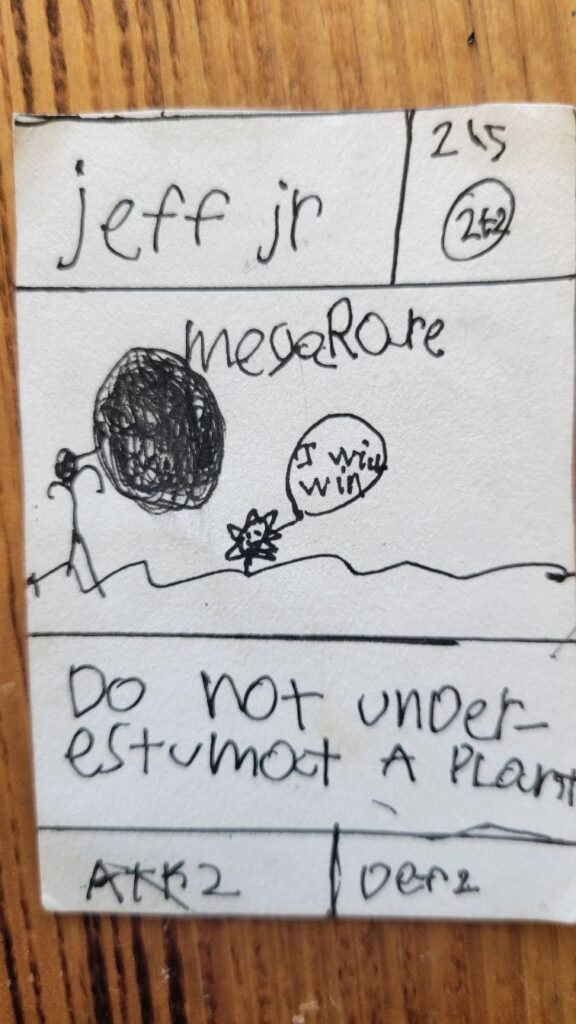 jeff jr
megaRare
I will
win
Do not under-
estumat A PLant
ATK2